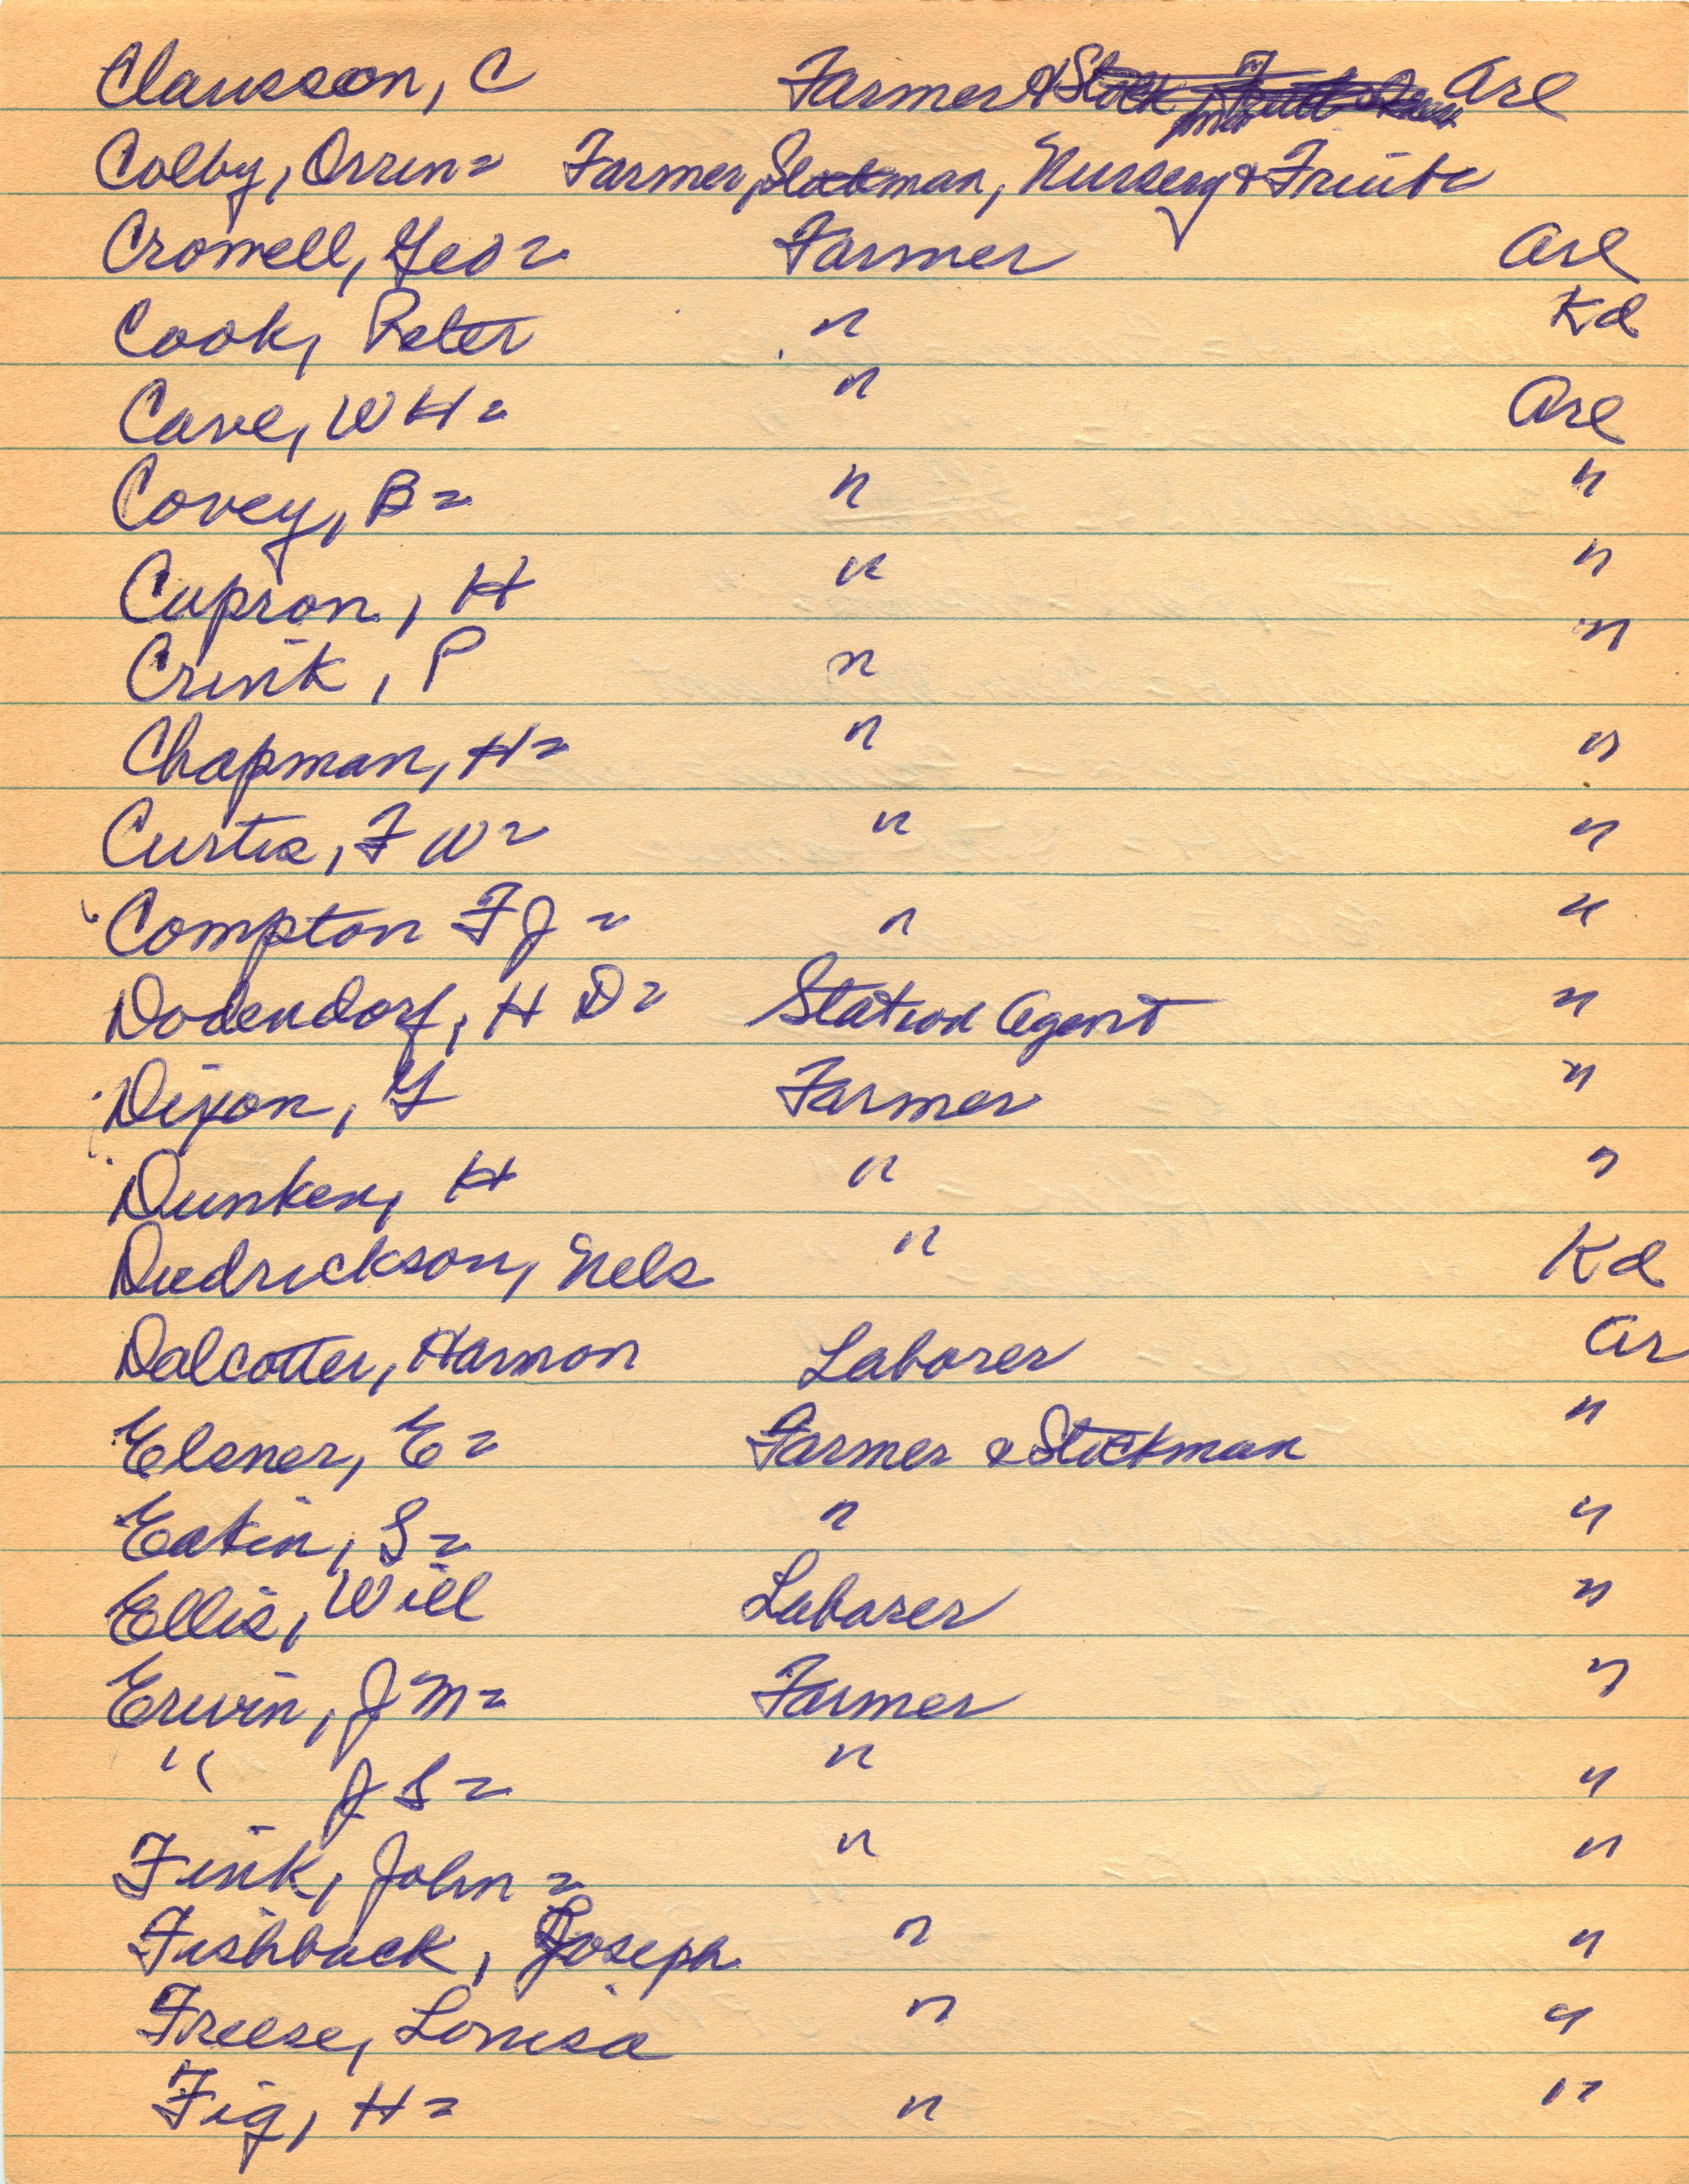 Clausson, C Farmer & Stock Arl
Colby, Orrin = Farmer, Stockman, Nursery & Fruits
Cromell, Geo = Farmer Arl
Cook, Peter " Kd
Cave, W H = " Arl
Covey, B = " "
Cupron, H " "
Crink, P " "
Chapman, H = " "
Curtis, F W = " "
Compton F J = " "
Dodendorf, H D = Station Agent "
Dixon, G Farmer "
Dunker, H " "
Diedrickson, Nels " Kd
Dalcotter, Harmon Laborer Ar
Elsner, E = Farmer & Stockman "
Eakin, S = " "
Ellis, Will Laborer "
Erwin, J M = Farmer "
" J S = " "
Fink, John = " "
Fishback, Joseph " "
Freese, Louisa " "
Fig, H = " "